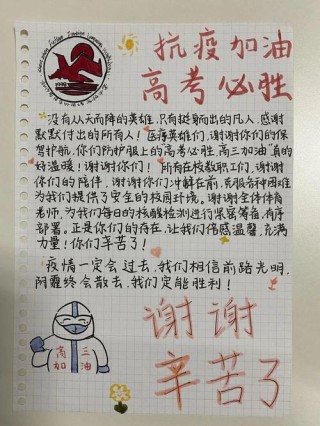 抗疫加油
高考必胜
没有从天而降的英雄,只有挺身而出的凡人,感谢
默默付出的所有人!医疗英雄们,谢谢你们的保
驾护航,你们防护服上的"高考必胜,高三加油"真的
好温暖!谢谢你们!所有在校教职工们,谢谢
你们的陪伴,谢谢你们冲锋在前,克服各种困难
为我们提供了安全的校园环境。谢谢全体体育
老师,为我们每日的核酸检测进行紧密筹备,有序
部署。正是你们的存在,让我们倍感温馨,充满
力量!你们辛苦了!
疫情一定会过去,我们相信前路光明,
阴霾终会散去,我们定能胜利!
高三
加油
谢谢
辛苦了